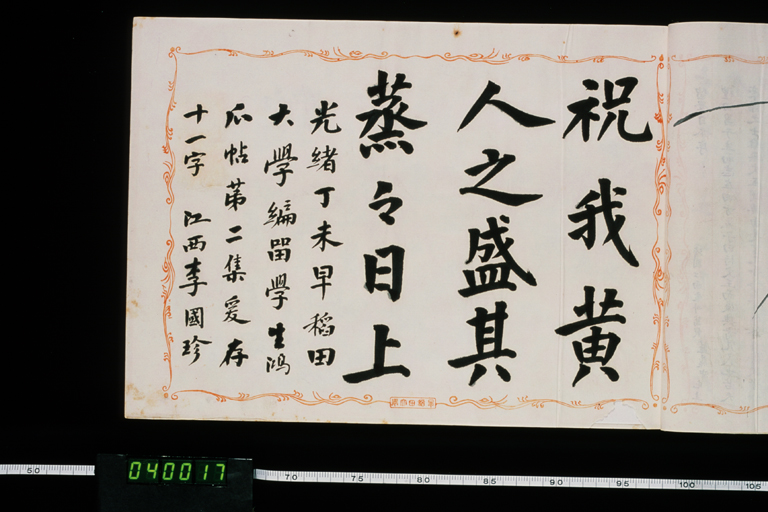 祝我黄
人之盛其
蒸々日上
光緒丁未早稻田
大學編留學生鴻
爪帖第二集爰存
十一字 江西李國珍
040017
50
70
75
80
85
90
95
100
105